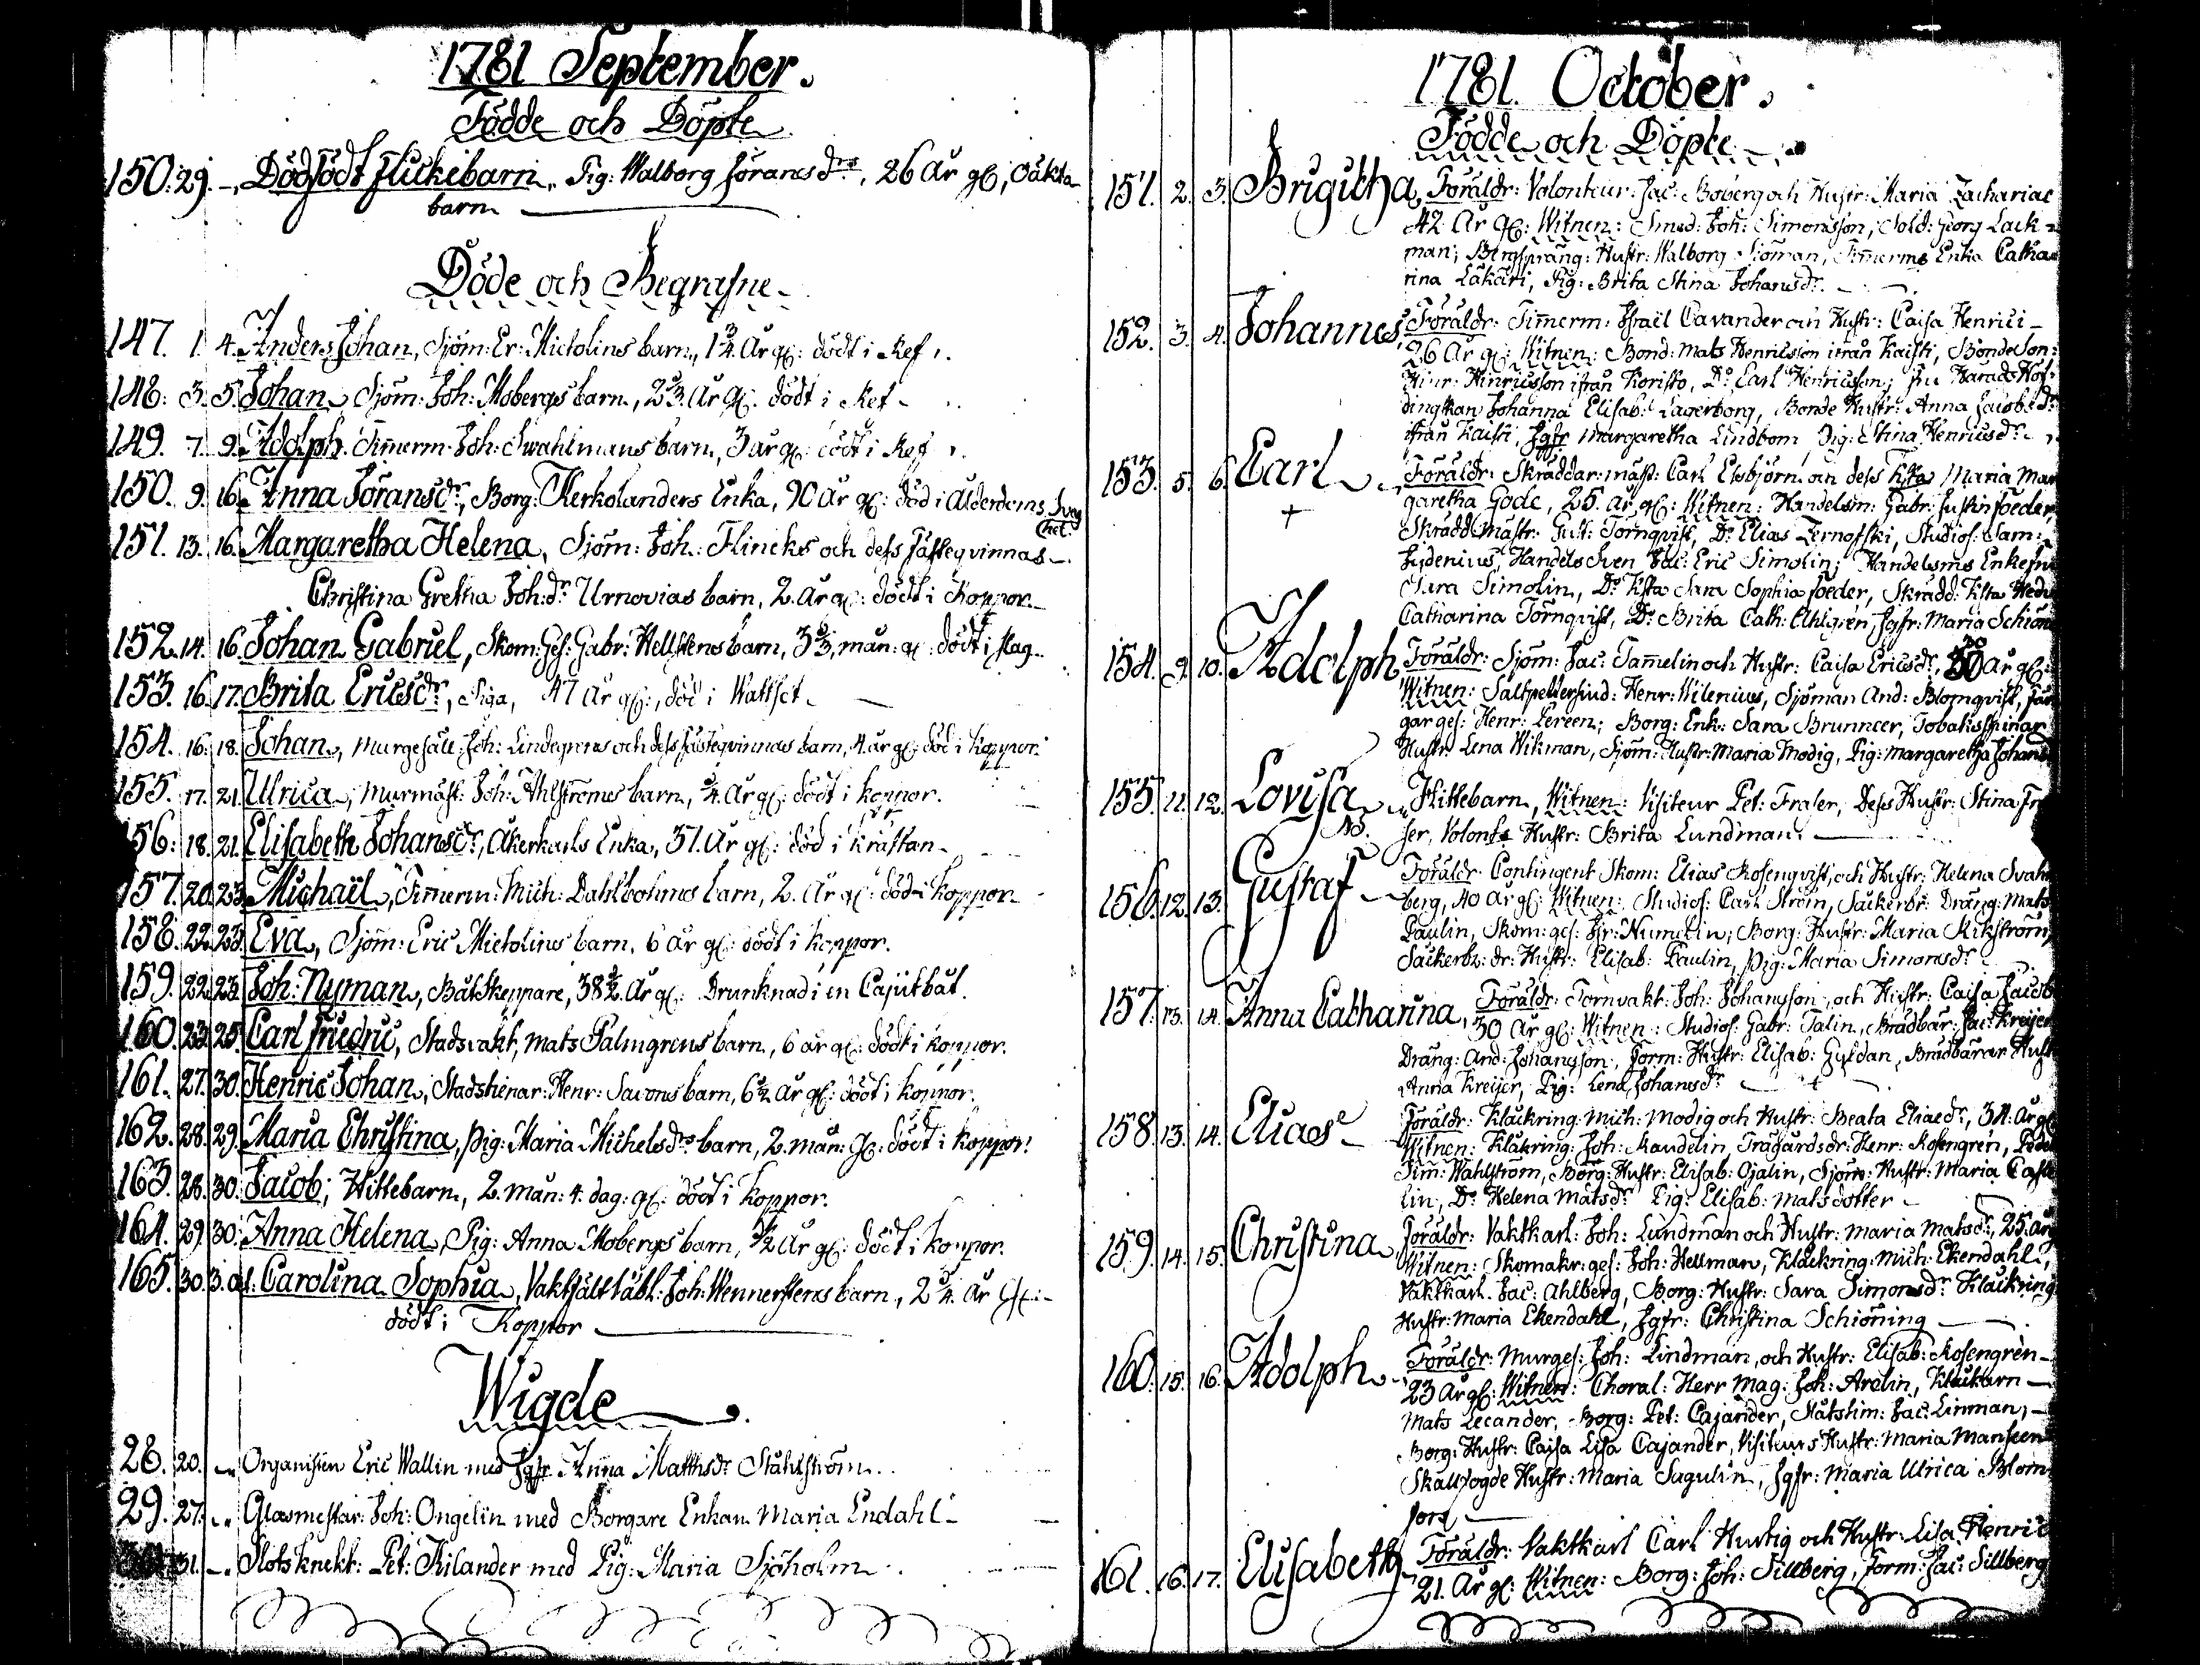 1781 September.
Födde och Döpte
150. 29. – Dödfödt Flickebarn, Pig: Walborg Jöransdr, 26 År gl, Oäkta
barn
Döde och Begrafne
147. 1. 4. Anders Johan, Sjöm: Er: Mietolins barn, 1¾ År gl: dödt i Ref.
148. 3. 5. Johan, Sjöm: Joh: Mobergs barn, 2⅔ År gl: dödt i Ref
149. 7. 9. Adolph. Tim̅erm: Joh: Swahlmans barn, 3 år gl: dödt i Ref.
150. 9. 16. Anna Jöransdr, Borg: Kerkolanders Enka, 90 År gl: död i Ålderdoms Svag
het.
151. 13. 16. Margaretha Helena, Sjöm: Joh: Flincks och dess fästeqvinnas
Christina Gretha Joh:dr Urnovias barn, 2. År gl: dödt i Koppor.
152. 14. 16. Johan Gabriel, Skom: Ges: Gabr: Hellstens barn, 3⅔ mån: gl: dödt i slag.
153. 16. 17. Brita Ericsdr, Piga, 47 År gl:, död i Wattsot.
154. 16. 18. Johan, Murgesäll: Joh: Lindegrens och dess fästeqvinnas barn, 4. år gl: död i Koppor.
155. 17. 21. Ulrica, Murmäst: Joh: Ahlströms barn, ¼ År gl: dödt i koppor.
156. 18. 21. Elisabeth Johansdr, Åkerkarls Enka, 51. År gl: död i kräftan
157. 20. 23. Michaël, Tim̅erm: Mich: Dahlbohms barn, 2. År gl: död i koppor
158. 22. 23. Eva, Sjöm: Eric Mietolins barn, 6 år gl: dödt i koppor.
159. 22. 23. Joh: Nyman, BåtSkeppare, 38½ År gl: Drunknad i en Cajutbåt.
160. 23. 25. Carl Friedric, Stadsvakt, Mats Palmgrens barn, 6 år gl: dödt i koppor.
161. 27. 30. Henric Johan, Stadstienar: Henr: Savons barn, 6½ År gl: dödt i koppor.
162. 28. 29. Maria Christina, Pig: Maria Michelsdrs barn, 2. mån: gl: dödt i koppor.
163. 28. 30. Jacob, Hittebarn, 2. mån: 4. dag: gl: dödt i koppor.
164. 29. 30. Anna Helena, Pig: Anna Mobergs barn, ½ År gl: dödt i koppor.
165. 30. 3. Carolina Sophia, Joh: Wennerstens barn, 2¼ År gl:
dödt i Koppor
Wigde
28. 20. – Organisten Eric Wallin med Jgfr Anna Matthsdr Ståhlström
29. 27. – Glasmestar: Joh: Ongelin med Borgare Enkan Maria Endahl
31. – Slotsknekt: Pet: Kilander med Pig: Maria Sjöholm
1781. October.
Födde och Döpte
151. 2. 3. Brigitha, Föräldr: Volonteur: Jac: Boberg och Hustr: Maria Zachariae
42 År gl: Witnen: Smed: Joh: Simonsson, Sold: Georg Lack
man; Hustr: Walborg Sjöman, Tim̅erms Enka Catha
rina Läkäri, Pig: Brita Stina Johansdr.
152. 3. 4. Johannes, Föräldr: Tim̅erm: Israël Cavander och Hustr: Caisa Henrici
26 År gl: Witnen: Bond: Mats Henricsson ifrån Kaisti, BondeSon:
Henr: Hinricsson ifrån Koristo, Do Carl Henricsson; Fru Härads Höf
dingskan Johanna Elisab: Lagerborg, Bonde Hustr: Anna Jacobsdr
ifrån Kaisti, Jgfr Margaretha Lindbom, Pig: Stina Henricsdr.
153. 5. 6. Carl Föräldr: Skräddar-mäst: Carl Elsbjörn och dess K:sta Maria Mar
garetha Gode, 25. År gl: Witnen: Handelsm: Gabr: Justin Foeder,
+
Skrädd: Mästr: Gust: Törnqvist, Do Elias Zernofski, Studios: Sam:
Fydenius, Handels Sven Jac: Eric Simolin; Handelsms Enkefru
Sara Simolin, Do K:sta Sara Sophia Foeder, Skrädd: K:sta Hedv
Catharina Törnqvist, Do Brita Cath: Ahlgren, Jgfr: Maria Schiön
154. 9. 10. Adolph Föräldr: Sjöm: Jac: Tam̅elin och Hustr: Caisa Ericsdr, 30 År gl:
Witnen: Saltpettersiud: Henr: Wilenius, Sjöman And: Blomqvist, Fär
gar ges: Henr: Pereen; Borg: Enk: Sara Brunneer, Tobaksspinar
Hustr: Lena Wikman, Sjöm: Hustr: Maria Modig, Pig: Margaretha Johans
155. 11. 12. Lovisa Hittebarn, Witnen: Visiteur Pet: Fraser, Dess Hustr: Stina Fra
ser, Volont: Hustr: Brita Lundman.
156. 12. 13. Gustaf Föräldr: Contingent Skom: Elias Rosenqvist, och Hustr: Helena Svahn
berg, 40 År gl: Witnen: Studios: Carl Ström, Sackerbr: Dräng: Mats
Paulin, Skom: ges: Numelin; Borg: Hustr: Maria Rikström,
Sackerbr: dr: Hustr: Elisab: Paulin, Pig: Maria Simonsdr
157. 13. 14. Anna Catharina, Föräldr: Tornvakt: Joh: Johansson, och Hustr: Caisa Jacob
30 År gl: Witnen: Studios: Gabr: Talin, Brädbär: Jac: Kreijer
Dräng: And: Johansson, Form: Hustr: Elisab: Gyldan, Brädbärar Hust
Anna Kreijer, Pig: Lena Johansdr
158. 13. 14. Elias Föräldr: Klåckring: Mich: Modig och Hustr: Beata Eliaedr, 34. År gl
Witnen: Klåckring: Joh: Randelin, Trägårdsdr: Henr: Rosengren,
Tim: Wahlström, Borg: Hustr: Elisab: Ojalin, Sjöm: Hustr: Maria
lin, Do Helena Matsdr Pig: Elisab: Matsdotter
159. 14. 15. Christina, Föräldr: Vaktkarl: Joh: Lundman och Hustr: Maria Matsdr, 25. År
Witnen: Skomakr: ges: Joh: Hellman, Klåckring: Mich: Ekendahl,
Vaktkarl. Jac: Ahlberg, Borg: Hustr: Sara Simonsdr Klåckring:
Hustr: Maria Ekendahl, Jgfr: Christina Schiöning
160. 15. 16. Adolph Föräldr: Murges: Joh: Lindman, och Hustr: Elisab: Rosengren
23 År gl: Witnen: Choral: Herr Mag: Joh: Arelin,
Mats Lecander, Borg: Pet: Cajander, Jac: Linman,
Borg: Hustr: Caisa Lisa Cajander, Visiteurs Hustr: Maria Manseen
Hustr: Maria Sagulin, Jgfr: Maria Ulrica Blom
fors
161. 16. 17. Elisabeth Föräldr: Vaktkarl Carl Hurtig och Hustr: Lisa Henric
21. År gl: Witnen: Borg: Joh: Sillberg, Form: Jac: Sillberg